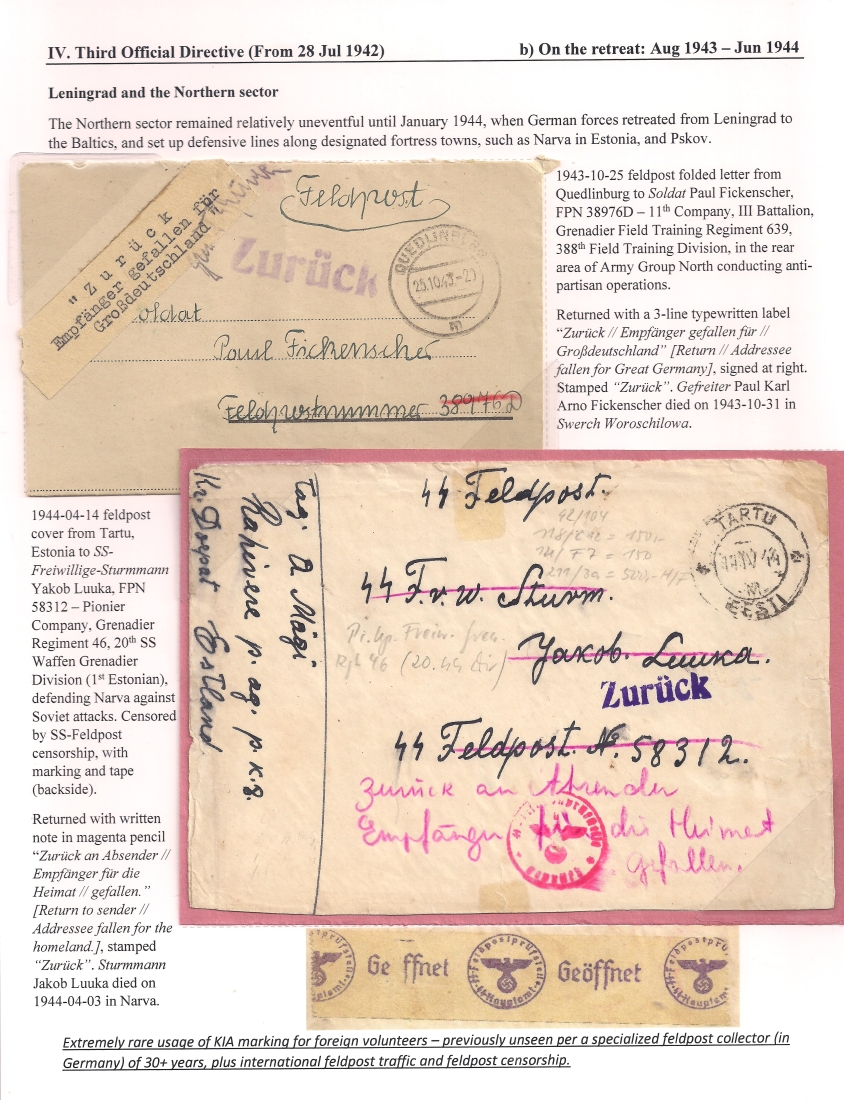 IV. Third Official Directive (From 28 Jul 1942)
b) On the retreat: Aug 1943 – Jun 1944
Leningrad and the Northern sector
The Northern sector remained relatively uneventful until January 1944, when German forces retreated from Leningrad to
the Baltics, and set up defensive lines along designated fortress towns, such as Narva in Estonia, and Pskov.
"Zurück
Empfänger gefallen für
Großdeutschland"
Feldpost
Zurück
QUEDLINBURG
25.10.43.-20
m
Soldat
Paul Fickenscher
Feldpostnummer 38976D
1943-10-25 feldpost folded letter from
Quedlinburg to Soldat Paul Fickenscher,
FPN 38976D – 11th Company, III Battalion,
Grenadier Field Training Regiment 639,
388th Field Training Division, in the rear
area of Army Group North conducting anti-
partisan operations.
Returned with a 3-line typewritten label
"Zurück // Empfänger gefallen für //
Großdeutschland" [Return // Addressee
fallen for Great Germany], signed at right.
Stamped "Zurück". Gefreiter Paul Karl
Arno Fickenscher died on 1943-10-31 in
Swerch Woroschilowa.
1944-04-14 feldpost
cover from Tartu,
Estonia to SS-
Freiwillige-Sturmmann
Yakob Luuka, FPN
58312 – Pionier
Company, Grenadier
Regiment 46, 20th SS
Waffen Grenadier
Division (1st Estonian),
defending Narva against
Soviet attacks. Censored
by SS-Feldpost
censorship, with
marking and tape
(backside).
Returned with written
note in magenta pencil
"Zurück an Absender //
Empfänger für die
Heimat // gefallen."
[Return to sender //
Addressee fallen for the
homeland.], stamped
"Zurück". Sturmmann
Jakob Luuka died on
1944-04-03 in Narva.
Tag. A Mägi
Rahivere p. ag. p.k.g.
Kr. Dorpat Estland
SS Feldpost.
TARTU
EESTI
SS F.v.w. Sturm.
Yakob. Luuka.
Zurück
SS Feldpost. N. 58312.
Zurück an Absender
Empfänger für die Heimat
gefallen.
Ge ffnet
Geöffnet
SS-Feldpostprüfstelle
SS-Hauptamt
Extremely rare usage of KIA marking for foreign volunteers – previously unseen per a specialized feldpost collector (in
Germany) of 30+ years, plus international feldpost traffic and feldpost censorship.